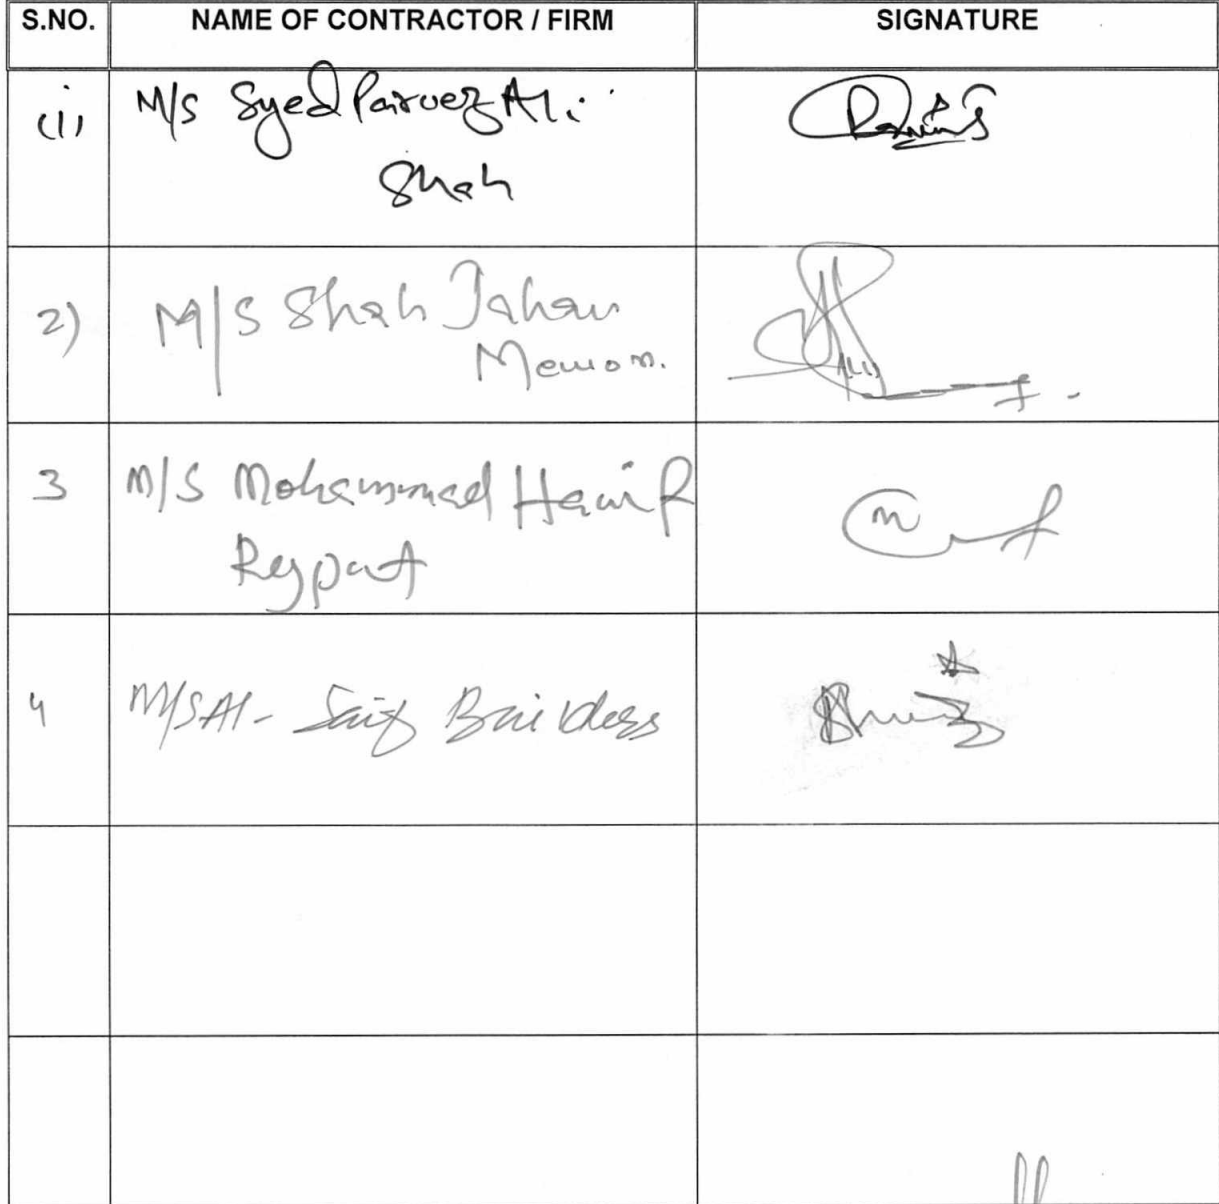 S.NO. NAME OF CONTRACTOR / FIRM SIGNATURE
(1) M/S Syed Parvez Ali
Shah
2) M/S Shah Jahan
Memon.
3 M/S Mohammad Hanif
Rajput
4 M/S Al- Saif Builders